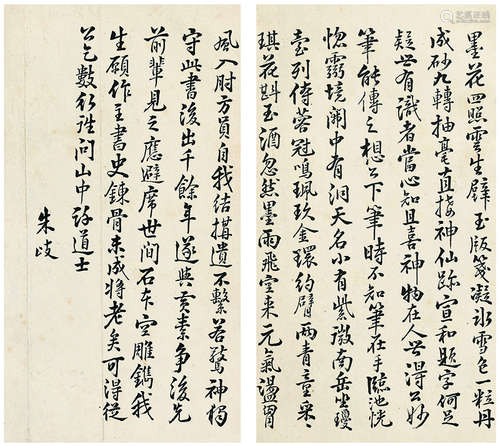 墨花四照雲生壁玉版箋凝冰雪色一粒丹
成砂九轉抽毫直接神仙跡宣和題字何足
疑世有識者當心知且喜神物在人世得公妙
筆能傳之想公下筆時不知筆在手臨池恍
惚靈境開中有洞天名小有紫微南岳坐瓊
臺列侍蓉冠鳴珮玖金環約臂兩青童采采
琪花斟玉酒忽然墨雨飛空來元氣盪胃
風入肘方員自我結搆遺不繫若鸞神獨
守此書後出千餘年遂與黃素爭後先
前輩見之應避席世間石本空雕鐫我
生願作主書史鍊骨未成將老矣可得從
公乞數行往問山中許道士
朱歧